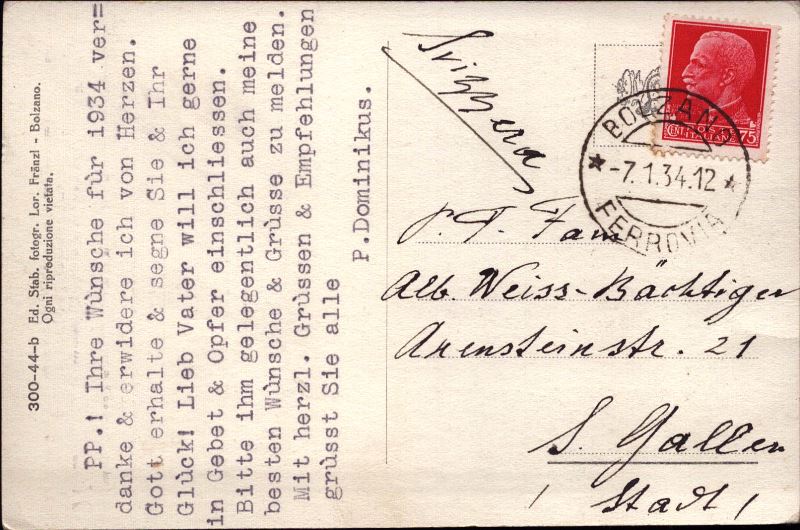 300-44-b Ed. Stab. fotogr. Lor. Fränzl - Bolzano.
Ogni riproduzione vietata.
PP.! Ihre Wùnsche fùr 1934 ver=
danke & erwidere ich von Herzen.
Gott erhalte & segne Sie & Ihr
Glùck! Lieb Vater will ich gerne
in Gebet & Opfer einschliessen.
Bitte ihm gelegentlich auch meine
besten Wùnsche & Grùsse zu melden.
Mit herzl. Grùssen & Empfehlungen
grùsst Sie alle
P.Dominikus.
Svizzera
CENT. ITALIANE 75
BOLZANO
-7.1.34.12
FERROVIA
P. T. Fam
Alb. Weiss-Bächtiger
Arensteinstr. 21
S. Gallen
! Stadt !